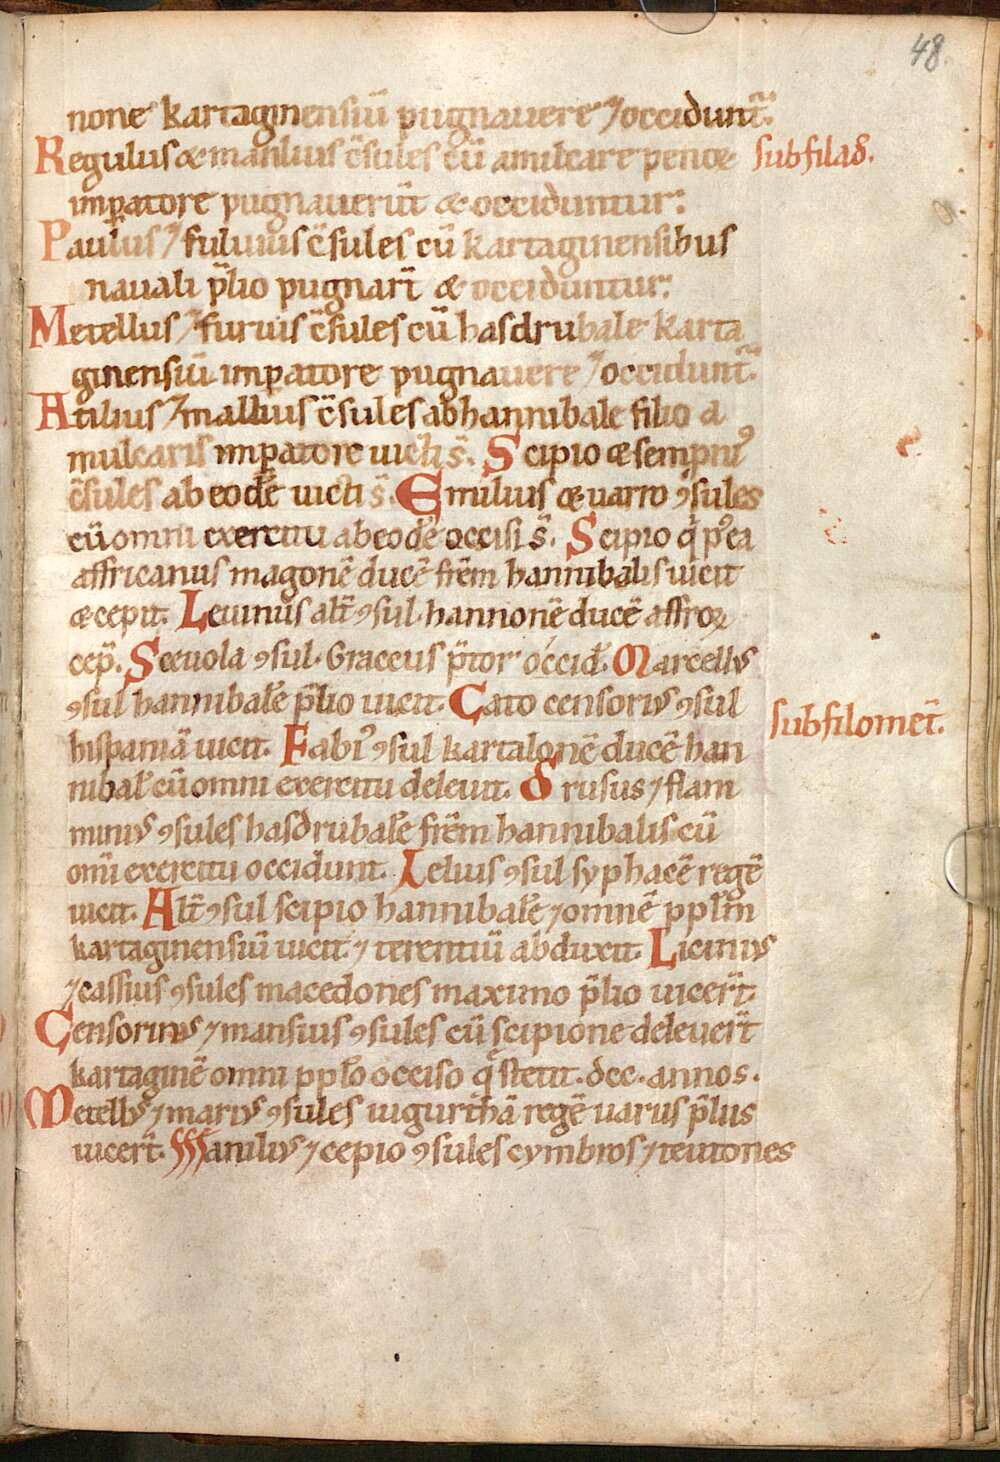 48.
none kartaginensiū pugnauere ⁊ occidunt᷑:
Regulus & manlius c̄sules cū amilcare penoꝝ subfilad.
imꝑatore pugnauerūt & occiduntur:
Paulus ⁊ fuluius c̄sules cū kartaginensibus
nauali p̄lio pugnart̄ & occiduntur:
Metellus ⁊ furuis c̄sules cū hasdrubale karta
ginensiū imꝑatore pugnauere ⁊ occidunt᷑.
Atilius ⁊ mallius c̄sules ab hannibale filio a
mulcaris imꝑatore uicti s̄. Scipio & sempniꝰ
c̄sules ab eodē uicti s̄. Emilius & uarro ꝯsules
cū omni exercitu ab eodē occisi s̄. Scipio q̇ pꝰea
affricanus magonē ducē frēm hannibalis uicit
& cepit. Leuinus alt̄ ꝯsul hannonē ducē affroꝝ
cep̄. Sceuola ꝯsul. Graccus p̄tor occid̄. Marcellꝰ
ꝯsul hannibalē p̄lio uicit. Cato censoriꝰ ꝯsul subfilomet̄.
hispaniā uicit. Fabiꝰ ꝯsul kartalonē ducē han
nibal̄ cū omni exercitu deleuit. Drusus ⁊ flam
miniꝰ ꝯsules hasdrubalē frēm hannibalis cū
omī exercitu occidunt. Lelius ꝯsul syphacē regē
uicit. Alt̄ ꝯsul scipio hannibalē ⁊ omnē pplm̄
kartaginensiū uicit ⁊ terentiū abduxit. Liciniꝰ
⁊ cassius ꝯsules macedones maximo p̄lio uicer̄t.
Censorinꝰ ⁊ mansius ꝯsules cū scipione deleuer̄t
kartaginē omni pplo occiso q̄ stetit. dcc. annos.
Metellꝰ ⁊ mariꝰ ꝯsules iugurthā regē uarus p̄lus
uicer̄t. Maniliꝰ ⁊ cepio ꝯsules cymbros ⁊ teutones